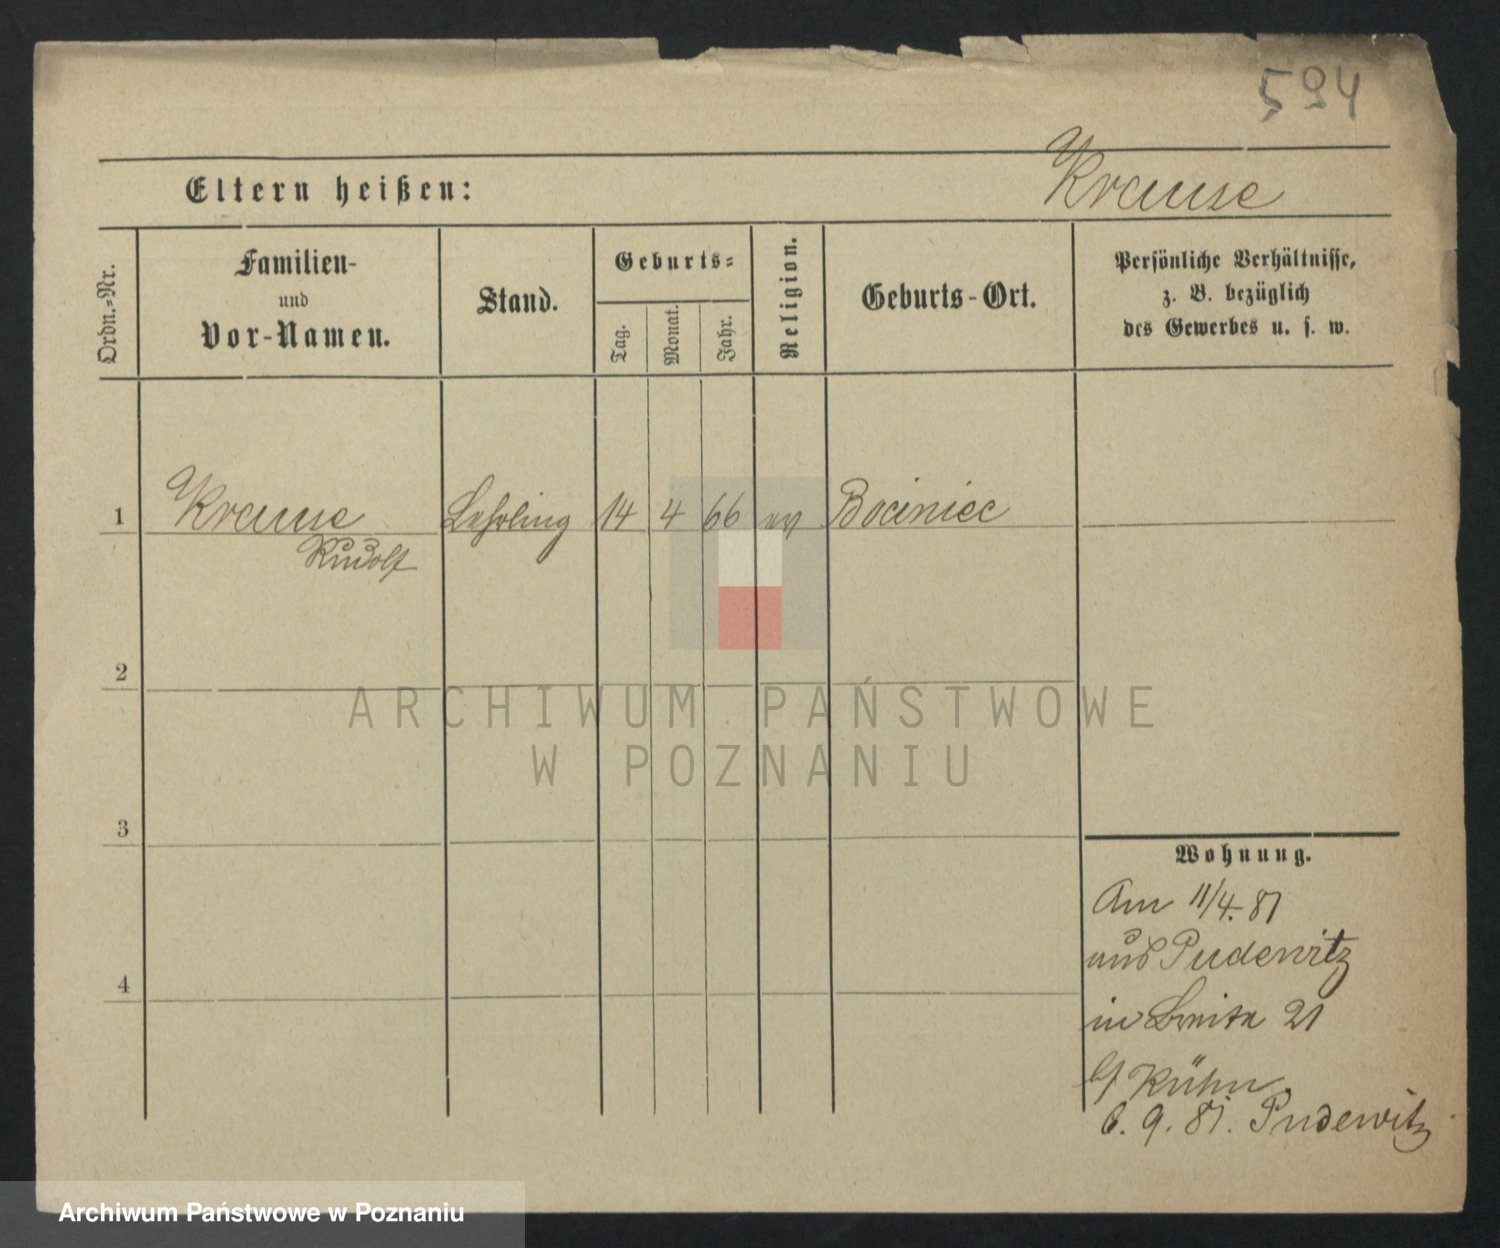 594
Eltern heißen:
Krause
Ordn.-Nr.
Familien-
und
Vor-Namen.
Stand.
Geburts-
Tag.
Monat.
Jahr.
Religion.
Geburts-Ort.
Persönliche Verhältnisse,
z. B. bezüglich
des Gewerbes u. s. w.
1 Krause Lehrling 14 4 66 ev Bociniec
Rudolf
2
ARCHIWUM PAŃSTWOWE
W POZNANIU
3
Wohnung.
Am 11/4. 81
aus Pudewitz
4
in Breite 21
b/ Kühn
6. 9. 81. Pudewitz
Archiwum Państwowe w Poznaniu